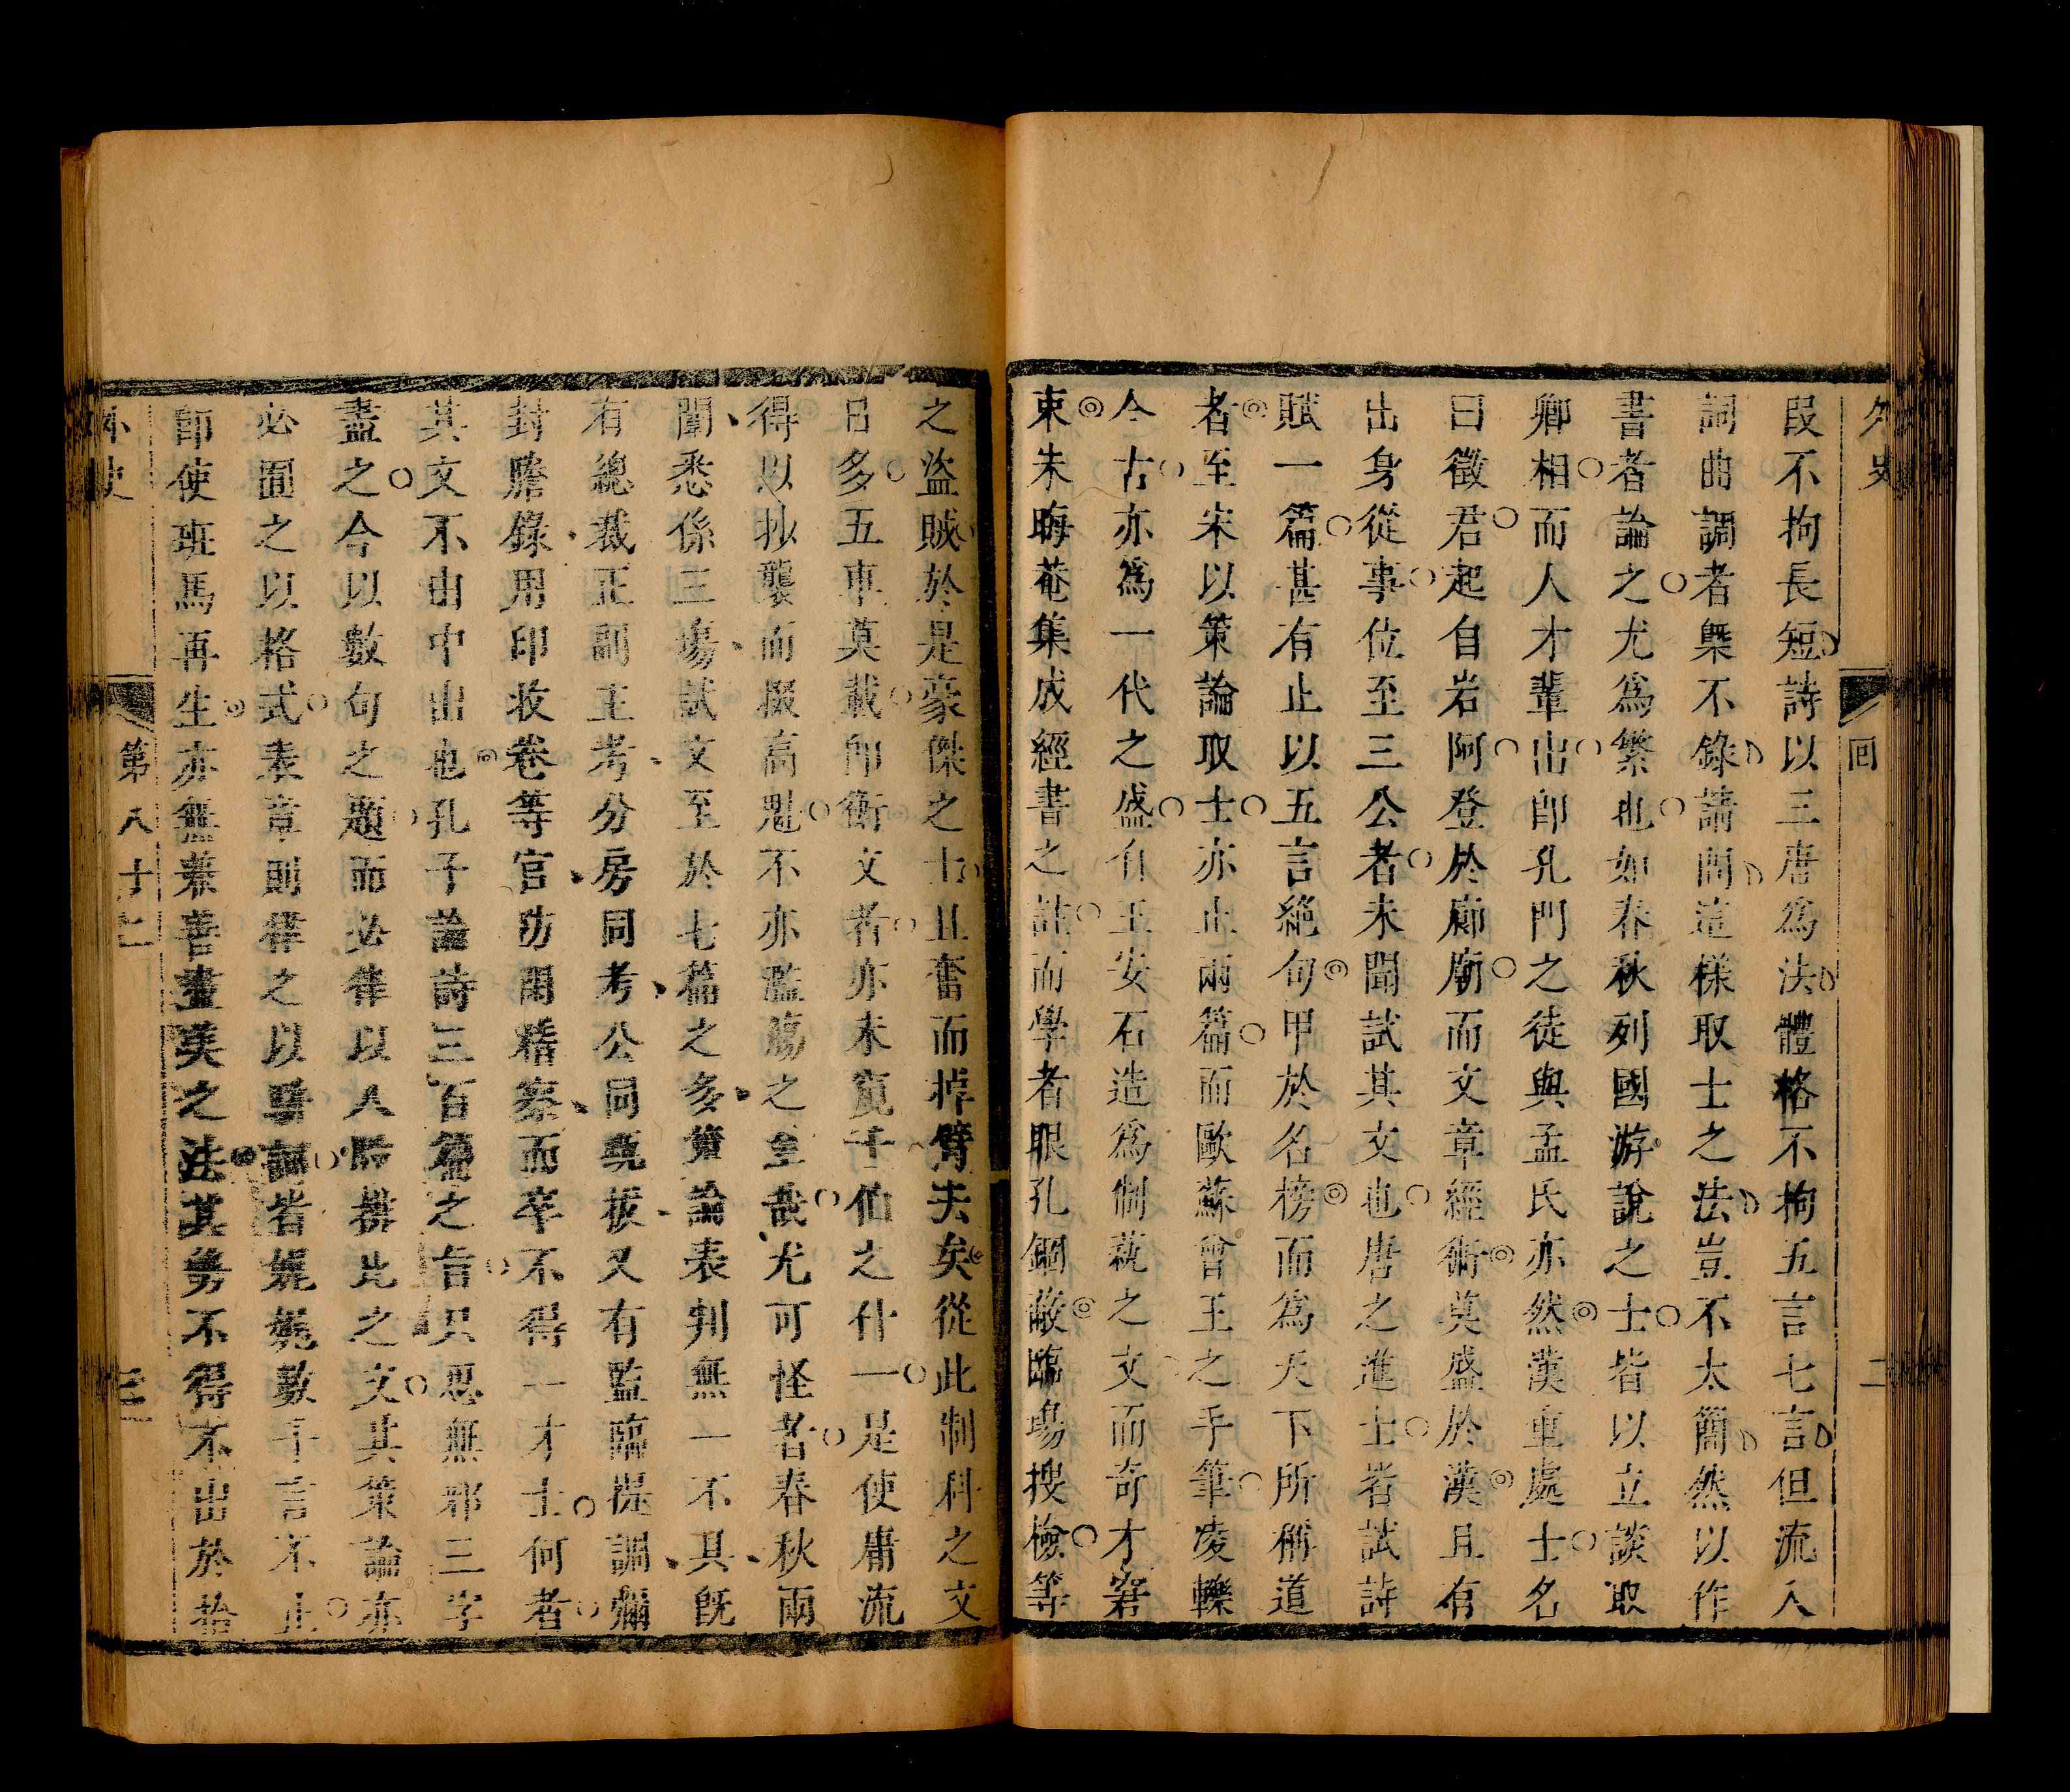 外史
回
二
段不拘長短詩以三唐爲法體格不拘五言七言但流入
詞曲調者槩不錄請問這樣取士之法豈不太簡然以作
書者論之尤爲繁也如春秋列國游說之士皆以立談取
卿相而人才輩出即孔門之徒與孟氏亦然漢重處士名
曰徵君起自岩阿登於廊廟而文章經術莫盛於漢且有
出身從事位至三公者未聞試其文也唐之進士者試詩
賦一篇甚有止以五言絶句甲於名榜而爲天下所稱道
者至宋以策論取士亦止兩篇而歐蘇曾王之手筆凌轢
今古亦爲一代之盛自王安石造爲制藝之文而奇才窘
束朱晦菴集成經書之註而學者眼孔錮蔽臨場搜檢等
之盜賊於是豪傑之士且奮而掉臂去矣從此制科之文
日多五車莫載即衡文者亦未窺千伯之什一是使庸流
得以抄襲而掇高魁不亦濫觴之至哉尤可怪者春秋兩
闈悉係三塲試文至於七篇之多策論表判無一不具旣
有總裁正副主考分房同考公同甄拔又有監臨提調彌
封謄錄用印收卷等官防閑稽察而卒不得一才士何者
其文不由中出也孔子論詩三百篇之旨只思無邪三字
盡之今以數句之題而必律以人股排比之文其策論亦
必囿之以格式表章則律之以駢詞者娓娓數千言不止
即使班馬再生亦無兼善盡美之法其勢不得不出於拾
外史
第八十二
三